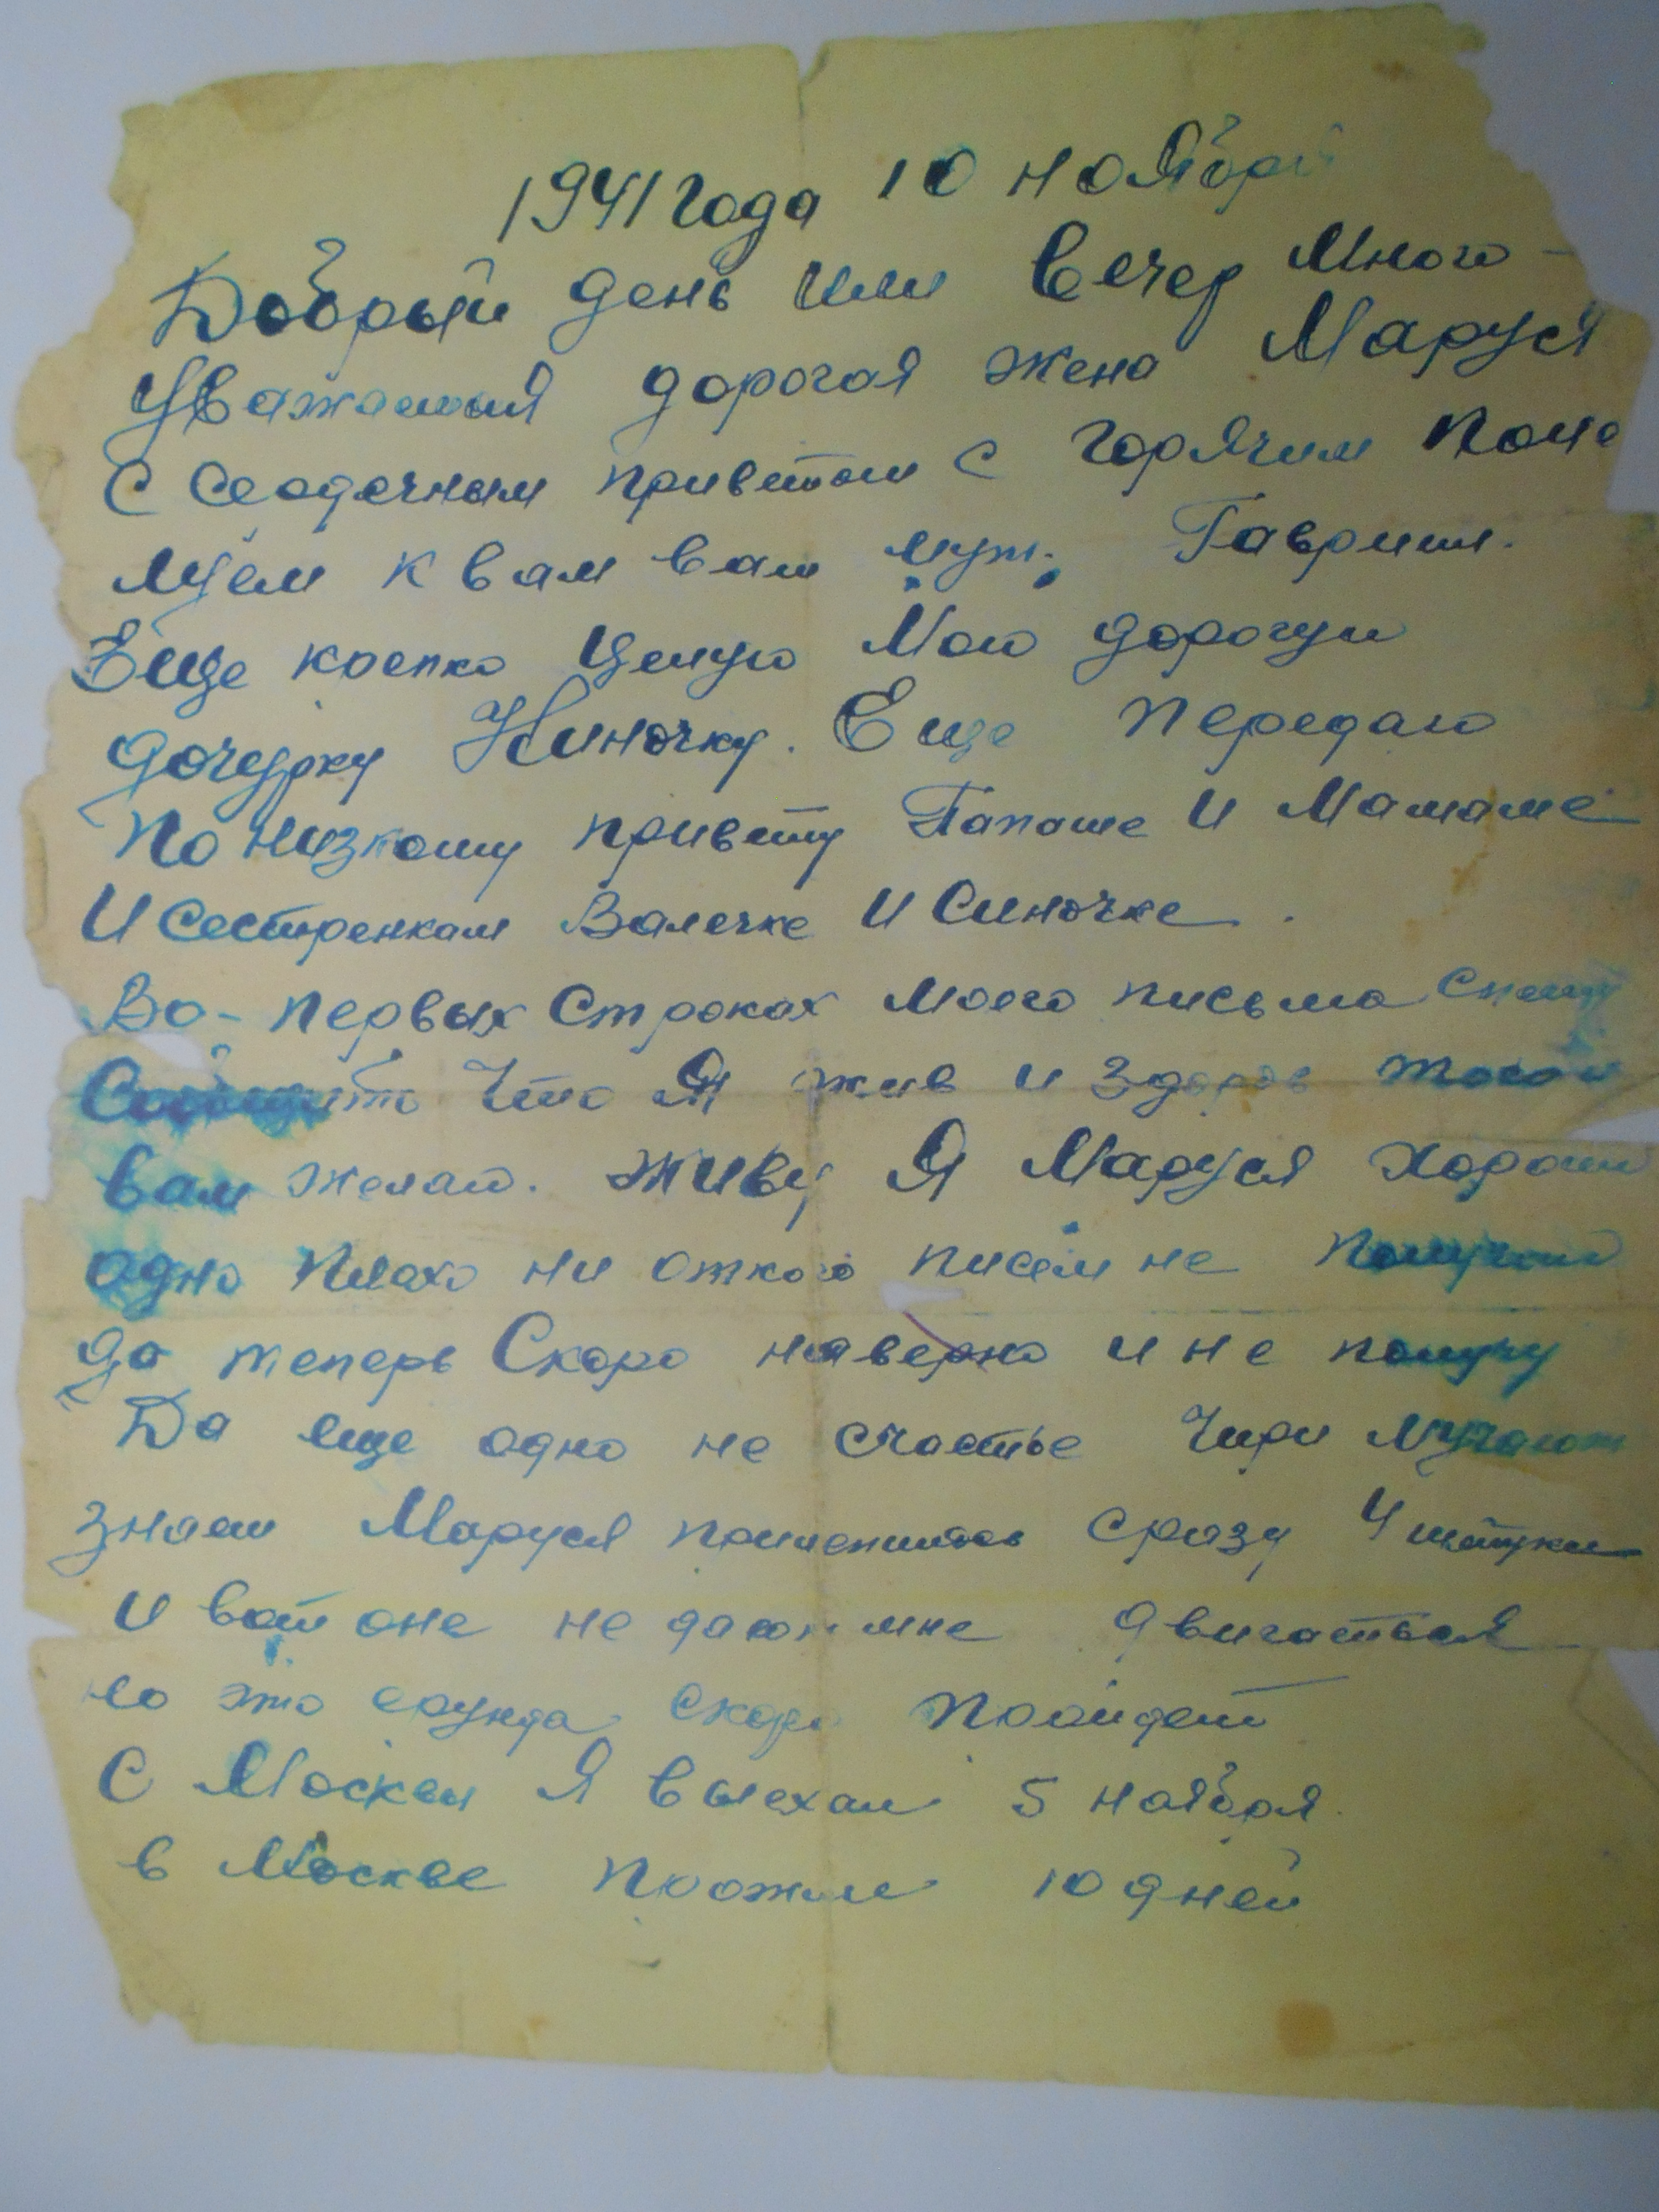 1941 года 10 ноября
Добрый день или вечер Много-
уважаемая дорогая жена Маруся
С сердечным приветом с горячим поце
луем к вам ваш муж. Гавриил.
Еще крепко целую Мою дорогую
дочурку Ниночку. Еще передаю
По низкому привету Папаше и Мамаше
И Сестренкам Валечке и Симочке.
Во-первых Строках моего письма Спешу
Сообщить Что Я жив и здоров того и
вам желаю. Живу Я Маруся Хорошо
одно Плохо ни откого писем не получаю
до теперь Скоро наверно и не получу
Да еще одно не счастье Чири мучают
знаеш Маруся прицепилось сразу 4 штуки
и вот оне не дают мне двигаться
но это ерунда скоро проидет
С Москвы Я выехал 5 ноября.
в Москве прожил 10 дней